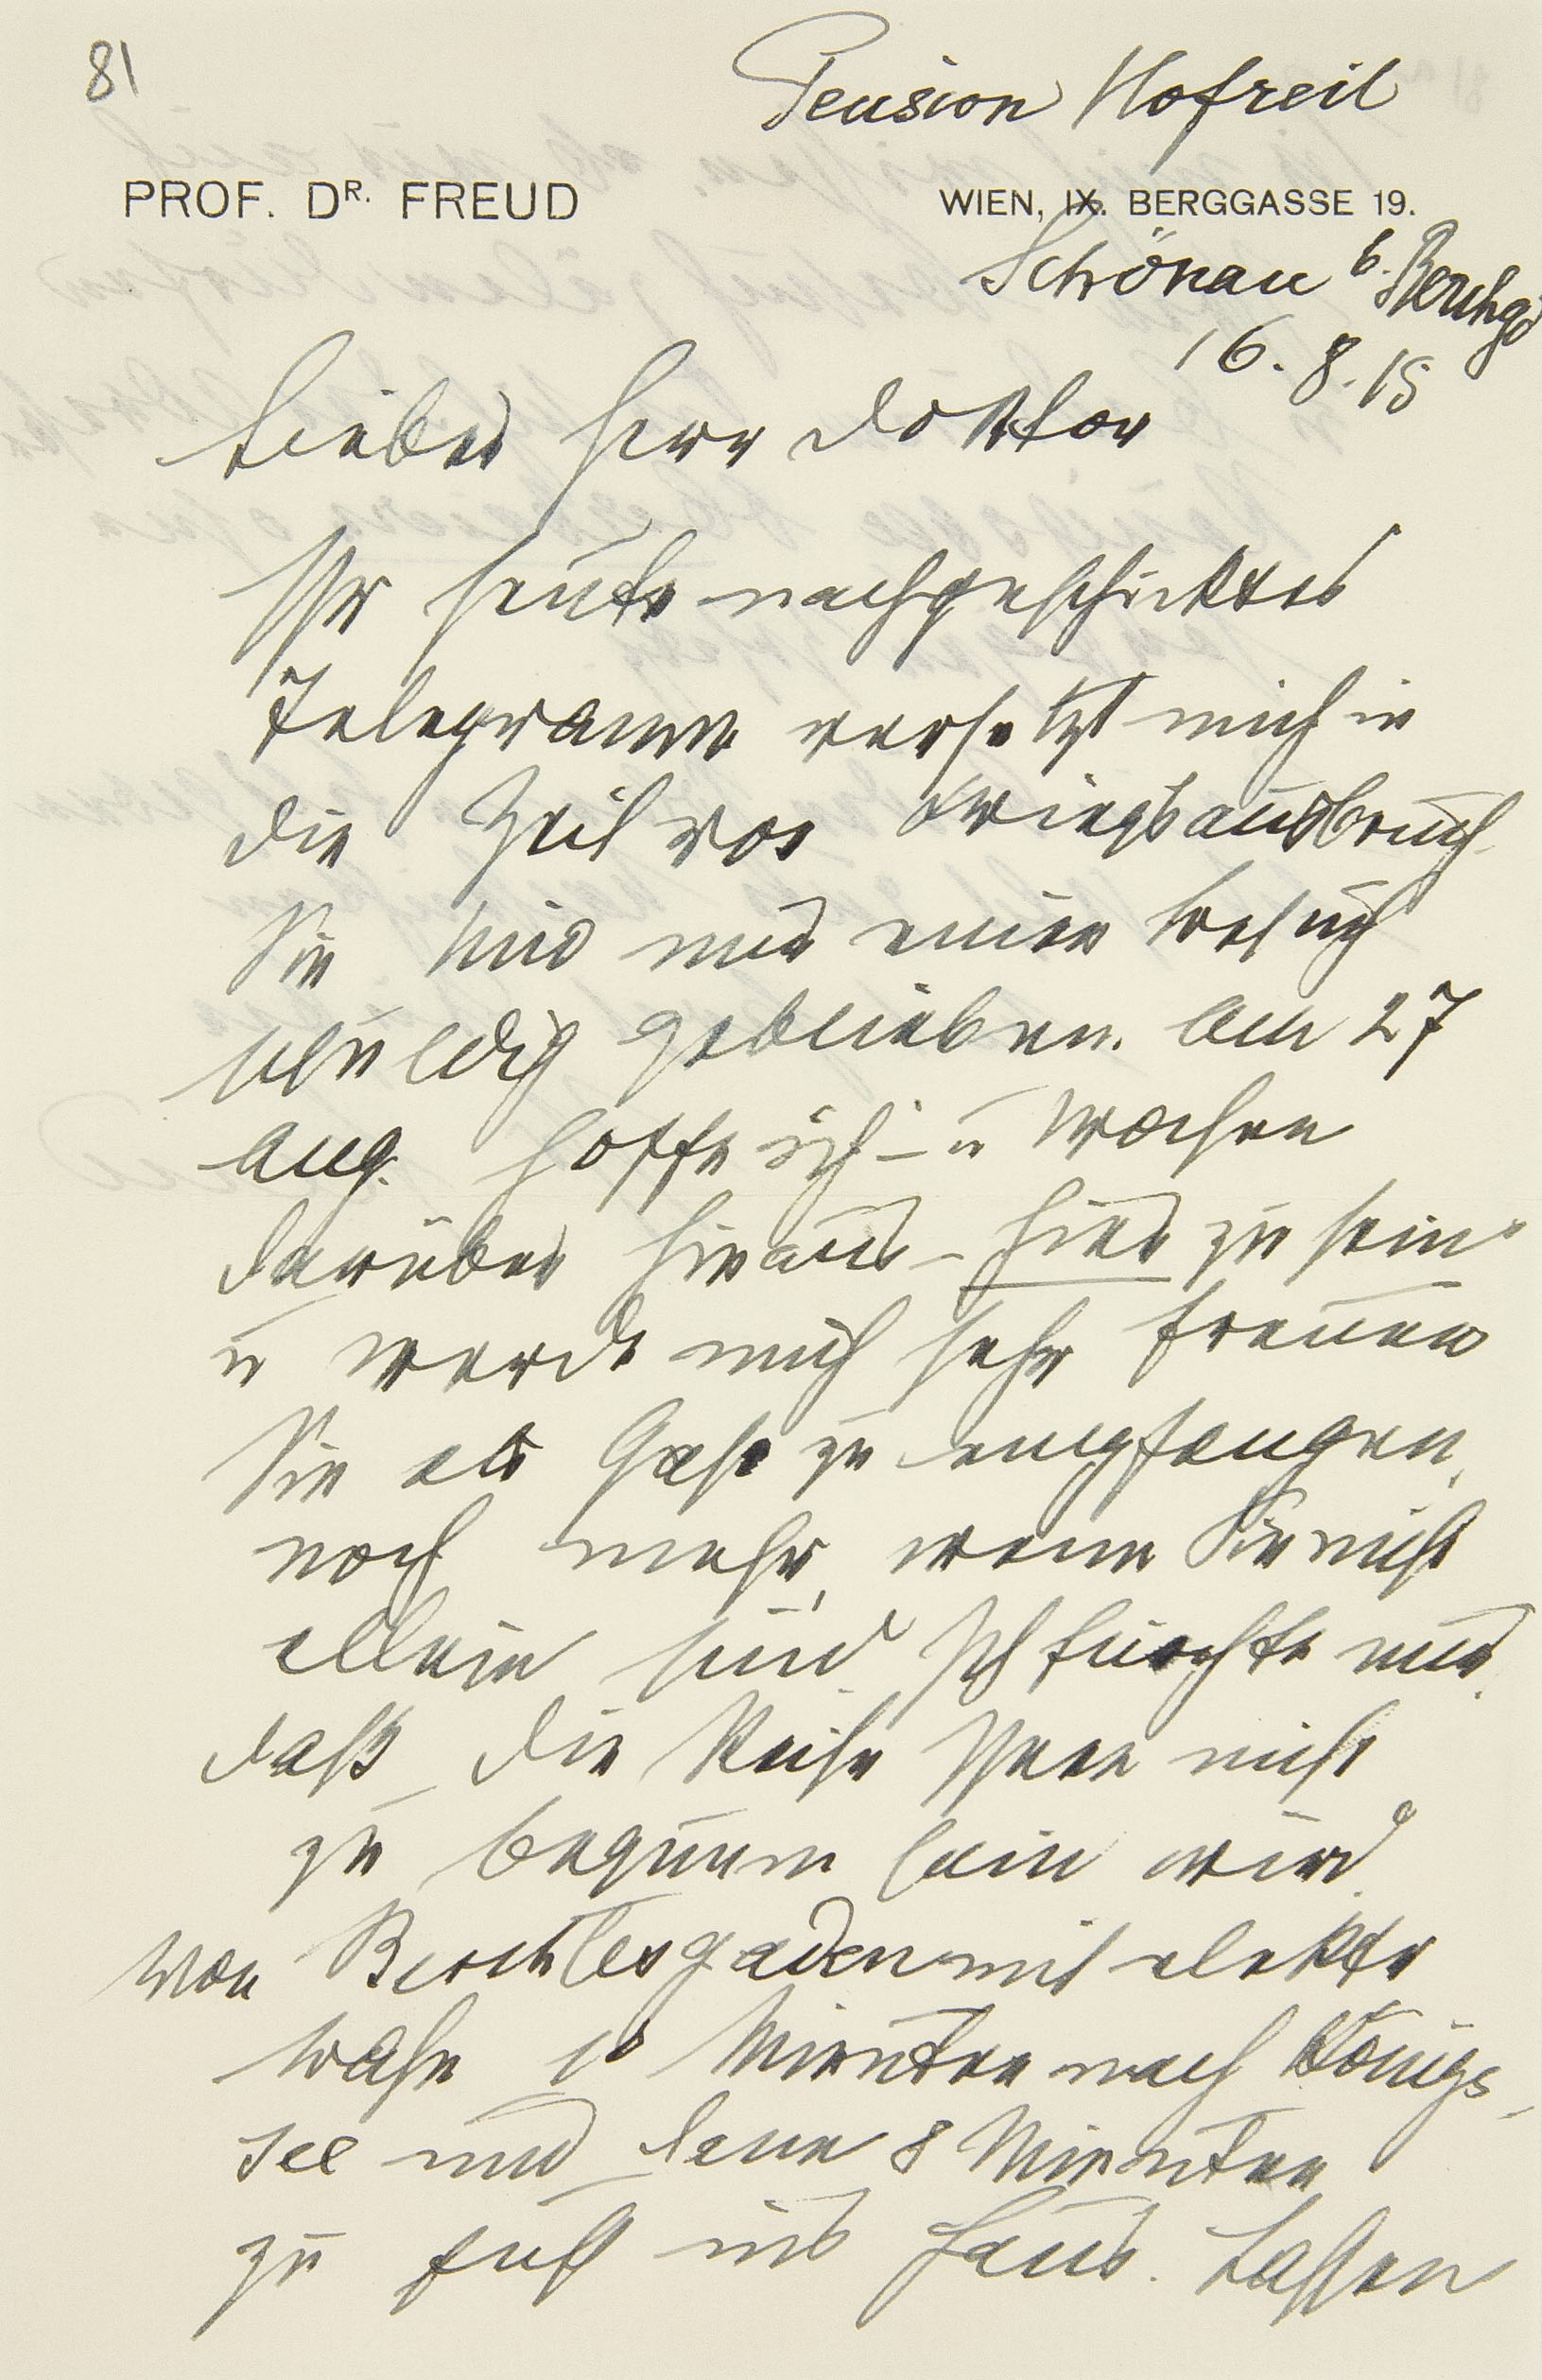 81
Pension Hofreit
PROF. DR. FREUD
WIEN, IX. BERGGASSE 19.
Schönau b. Berchtgd
16. 8. 15
Lieber Herr Doktor
Ihr heute nachgeschicktes
Telegramm versetzt mich in
die Zeit vor Kriegsausbruch.
Sie sind mir einen Besuch
schuldig geblieben. Am 27
Aug. hoffe ich – u Wochen
darüber hinaus – hier zu sein
u werde mich sehr freuen
Sie als Gast zu empfangen,
noch mehr, wenn Sie nicht
allein sind. Ich fürchte nur,
daß die Reise Ihnen nicht
zu bequem sein wird.
Von Berchtesgaden mit elektr
Bahn 10 Minuten nach Königs-
see und dann 8 Minuten
zu Fuß ins Haus. Lassen